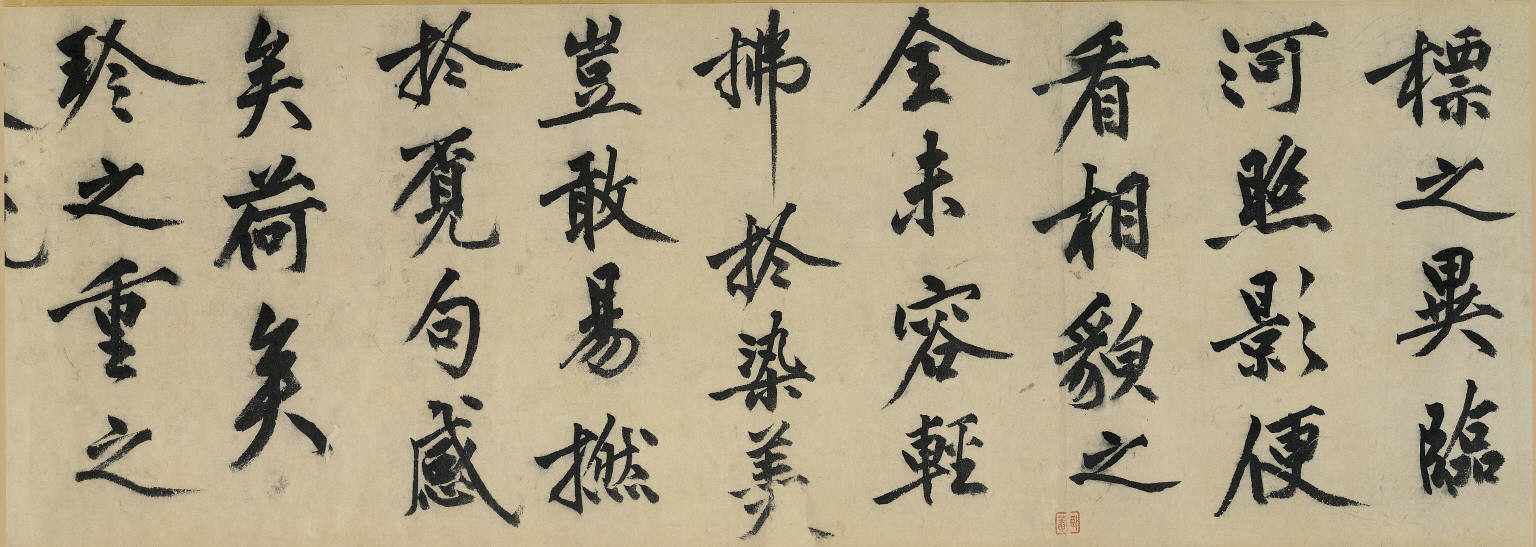 標之異臨
河照影便
看相貌之
全未容輕
拂於染美
豈敢易撚
於覓句感
矣荷矣
珎之重之